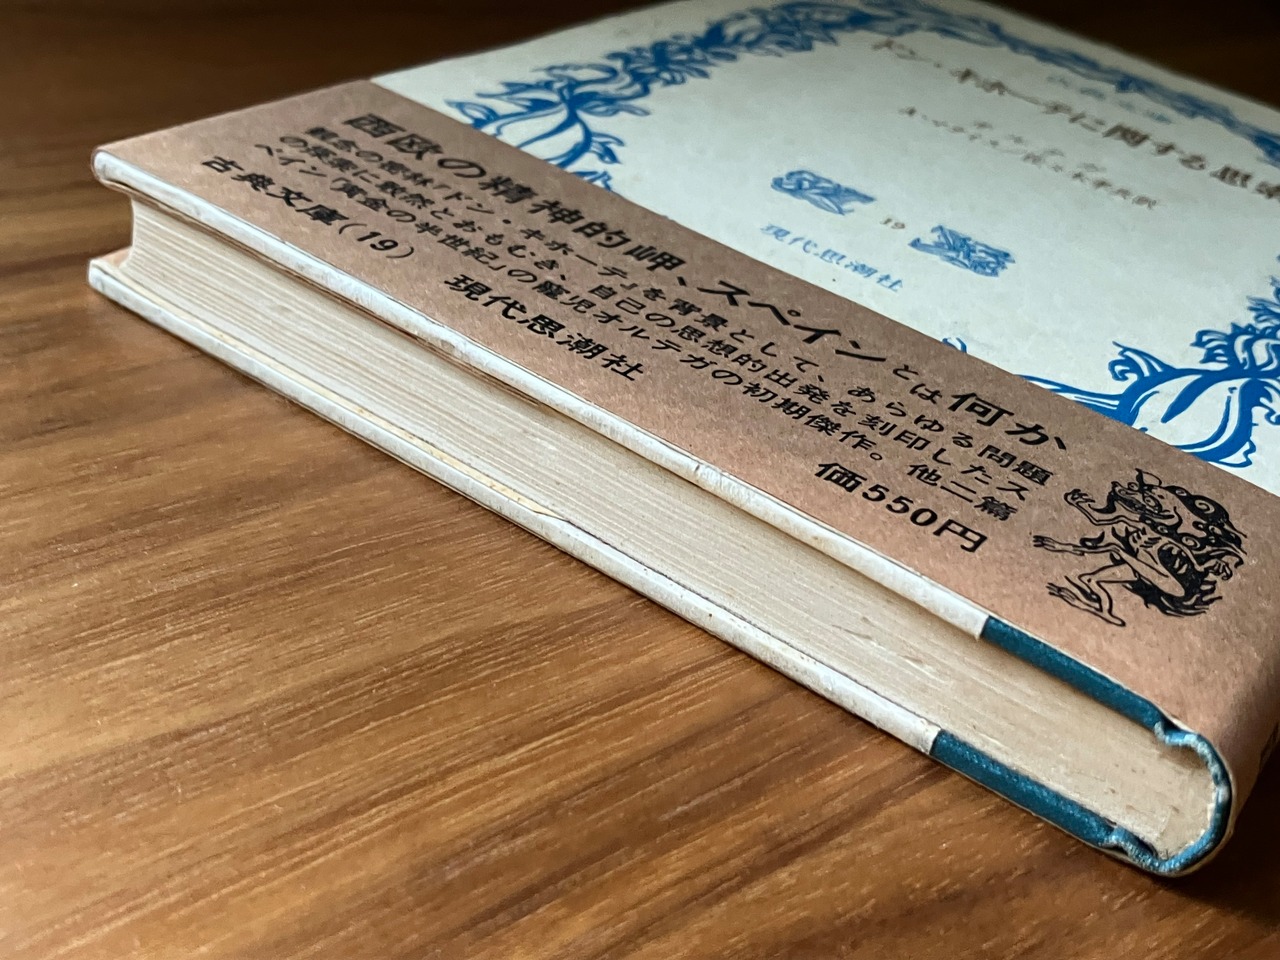 ドン・キホーテに関する思索
A・マタイス／佐々木孝共訳
19
現代思潮社
西欧の精神的岬、スペインとは何か
観念の密林『ドン・キホーテ』を背景として、あらゆる問題
の探索に敢然とおもむき、自己の思想的出発を刻印したス
ペイン「黄金の半世紀」の寵児オルテガの初期傑作。他二篇
古典文庫(19) 現代思潮社 価550円